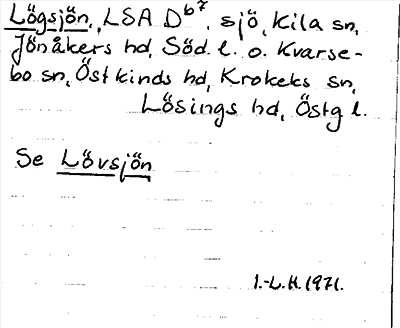 Lögsjön, LSA D⁶⁷, sjö, Kila sn,
Jönåkers hd, Söd.l. o. Kvarse-
bo sn, Östkinds hd, Krokeks sn,
Lösings hd, Östg l.
Se Lövsjön
I.-L.H. 1971.